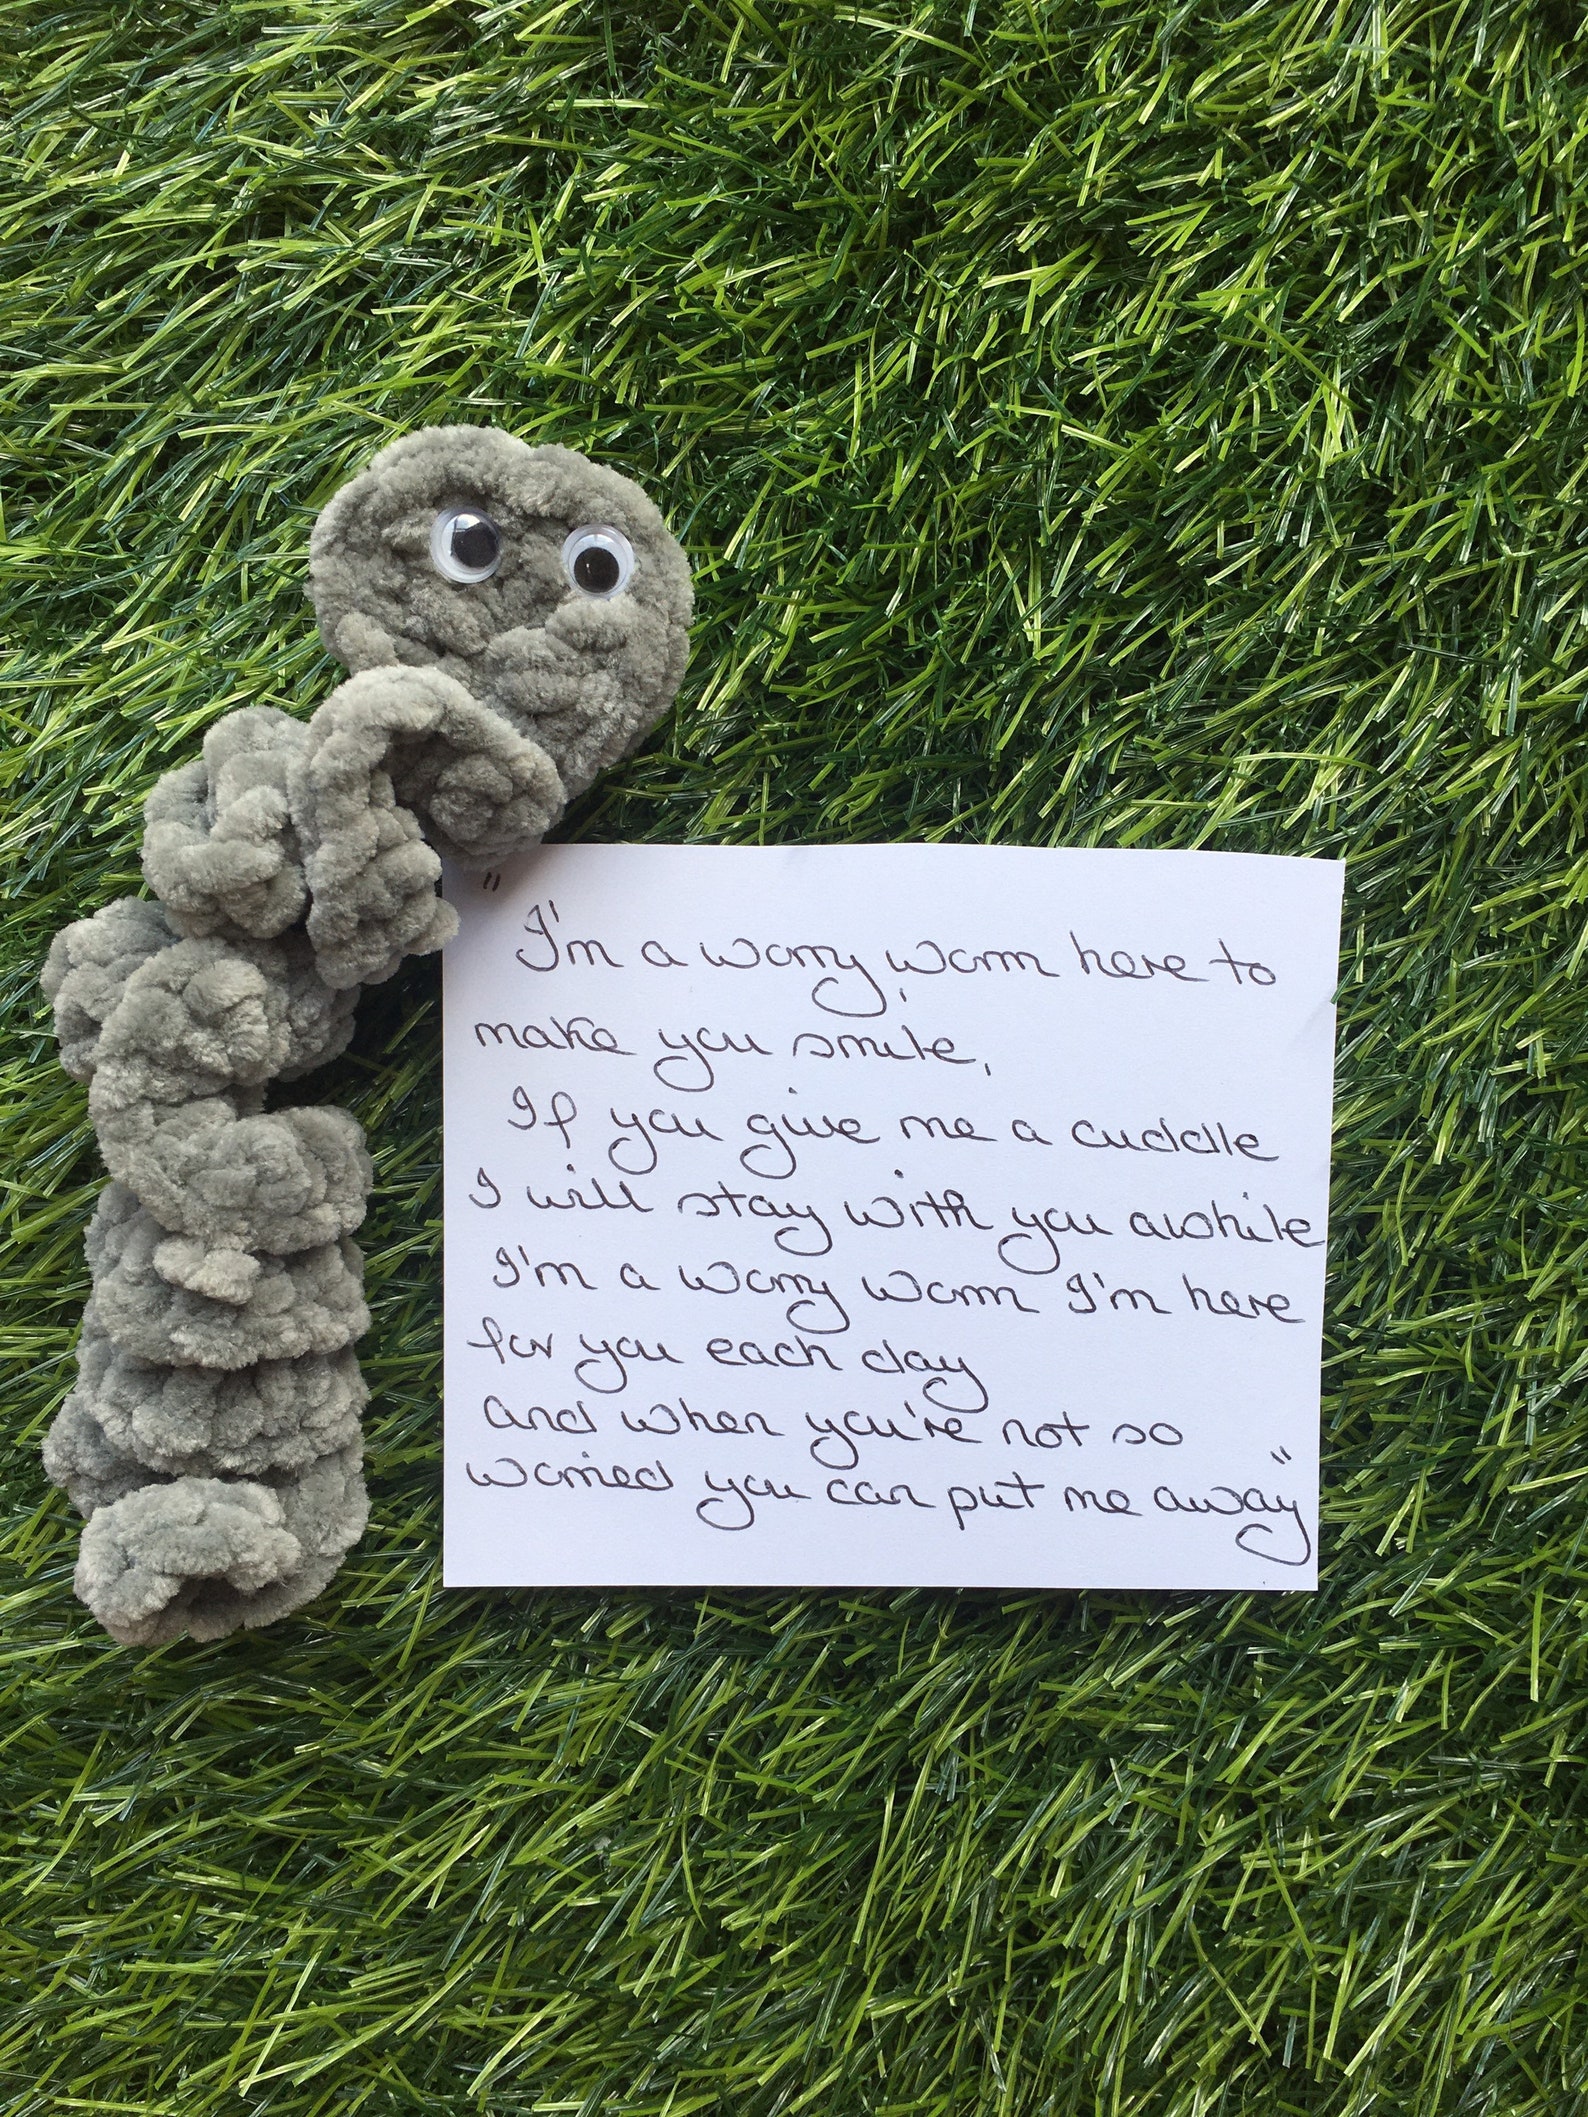 "I'm a worry worm here to
make you smile,
If you give me a cuddle
I will stay with you awhile
I'm a worry worm I'm here
for you each day
and when you're not so
worried you can put me away"